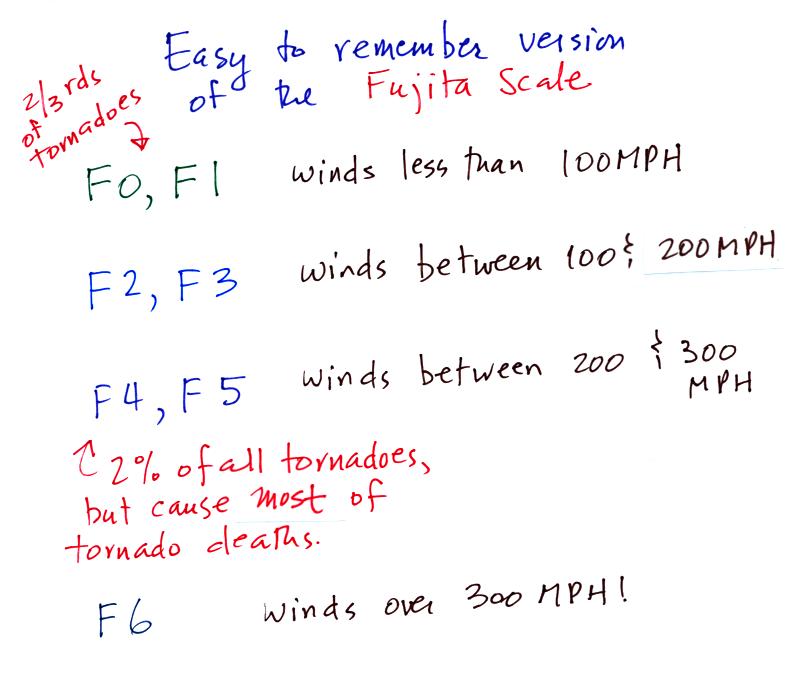 Easy to remember version
of the Fujita Scale
2/3rds
of
tornadoes
F0, F1 winds less than 100MPH
F2, F3 winds between 100 & 200MPH
F4, F5 winds between 200 & 300
MPH
2% of all tornadoes,
but cause most of
tornado deaths.
F6 winds over 300 MPH!